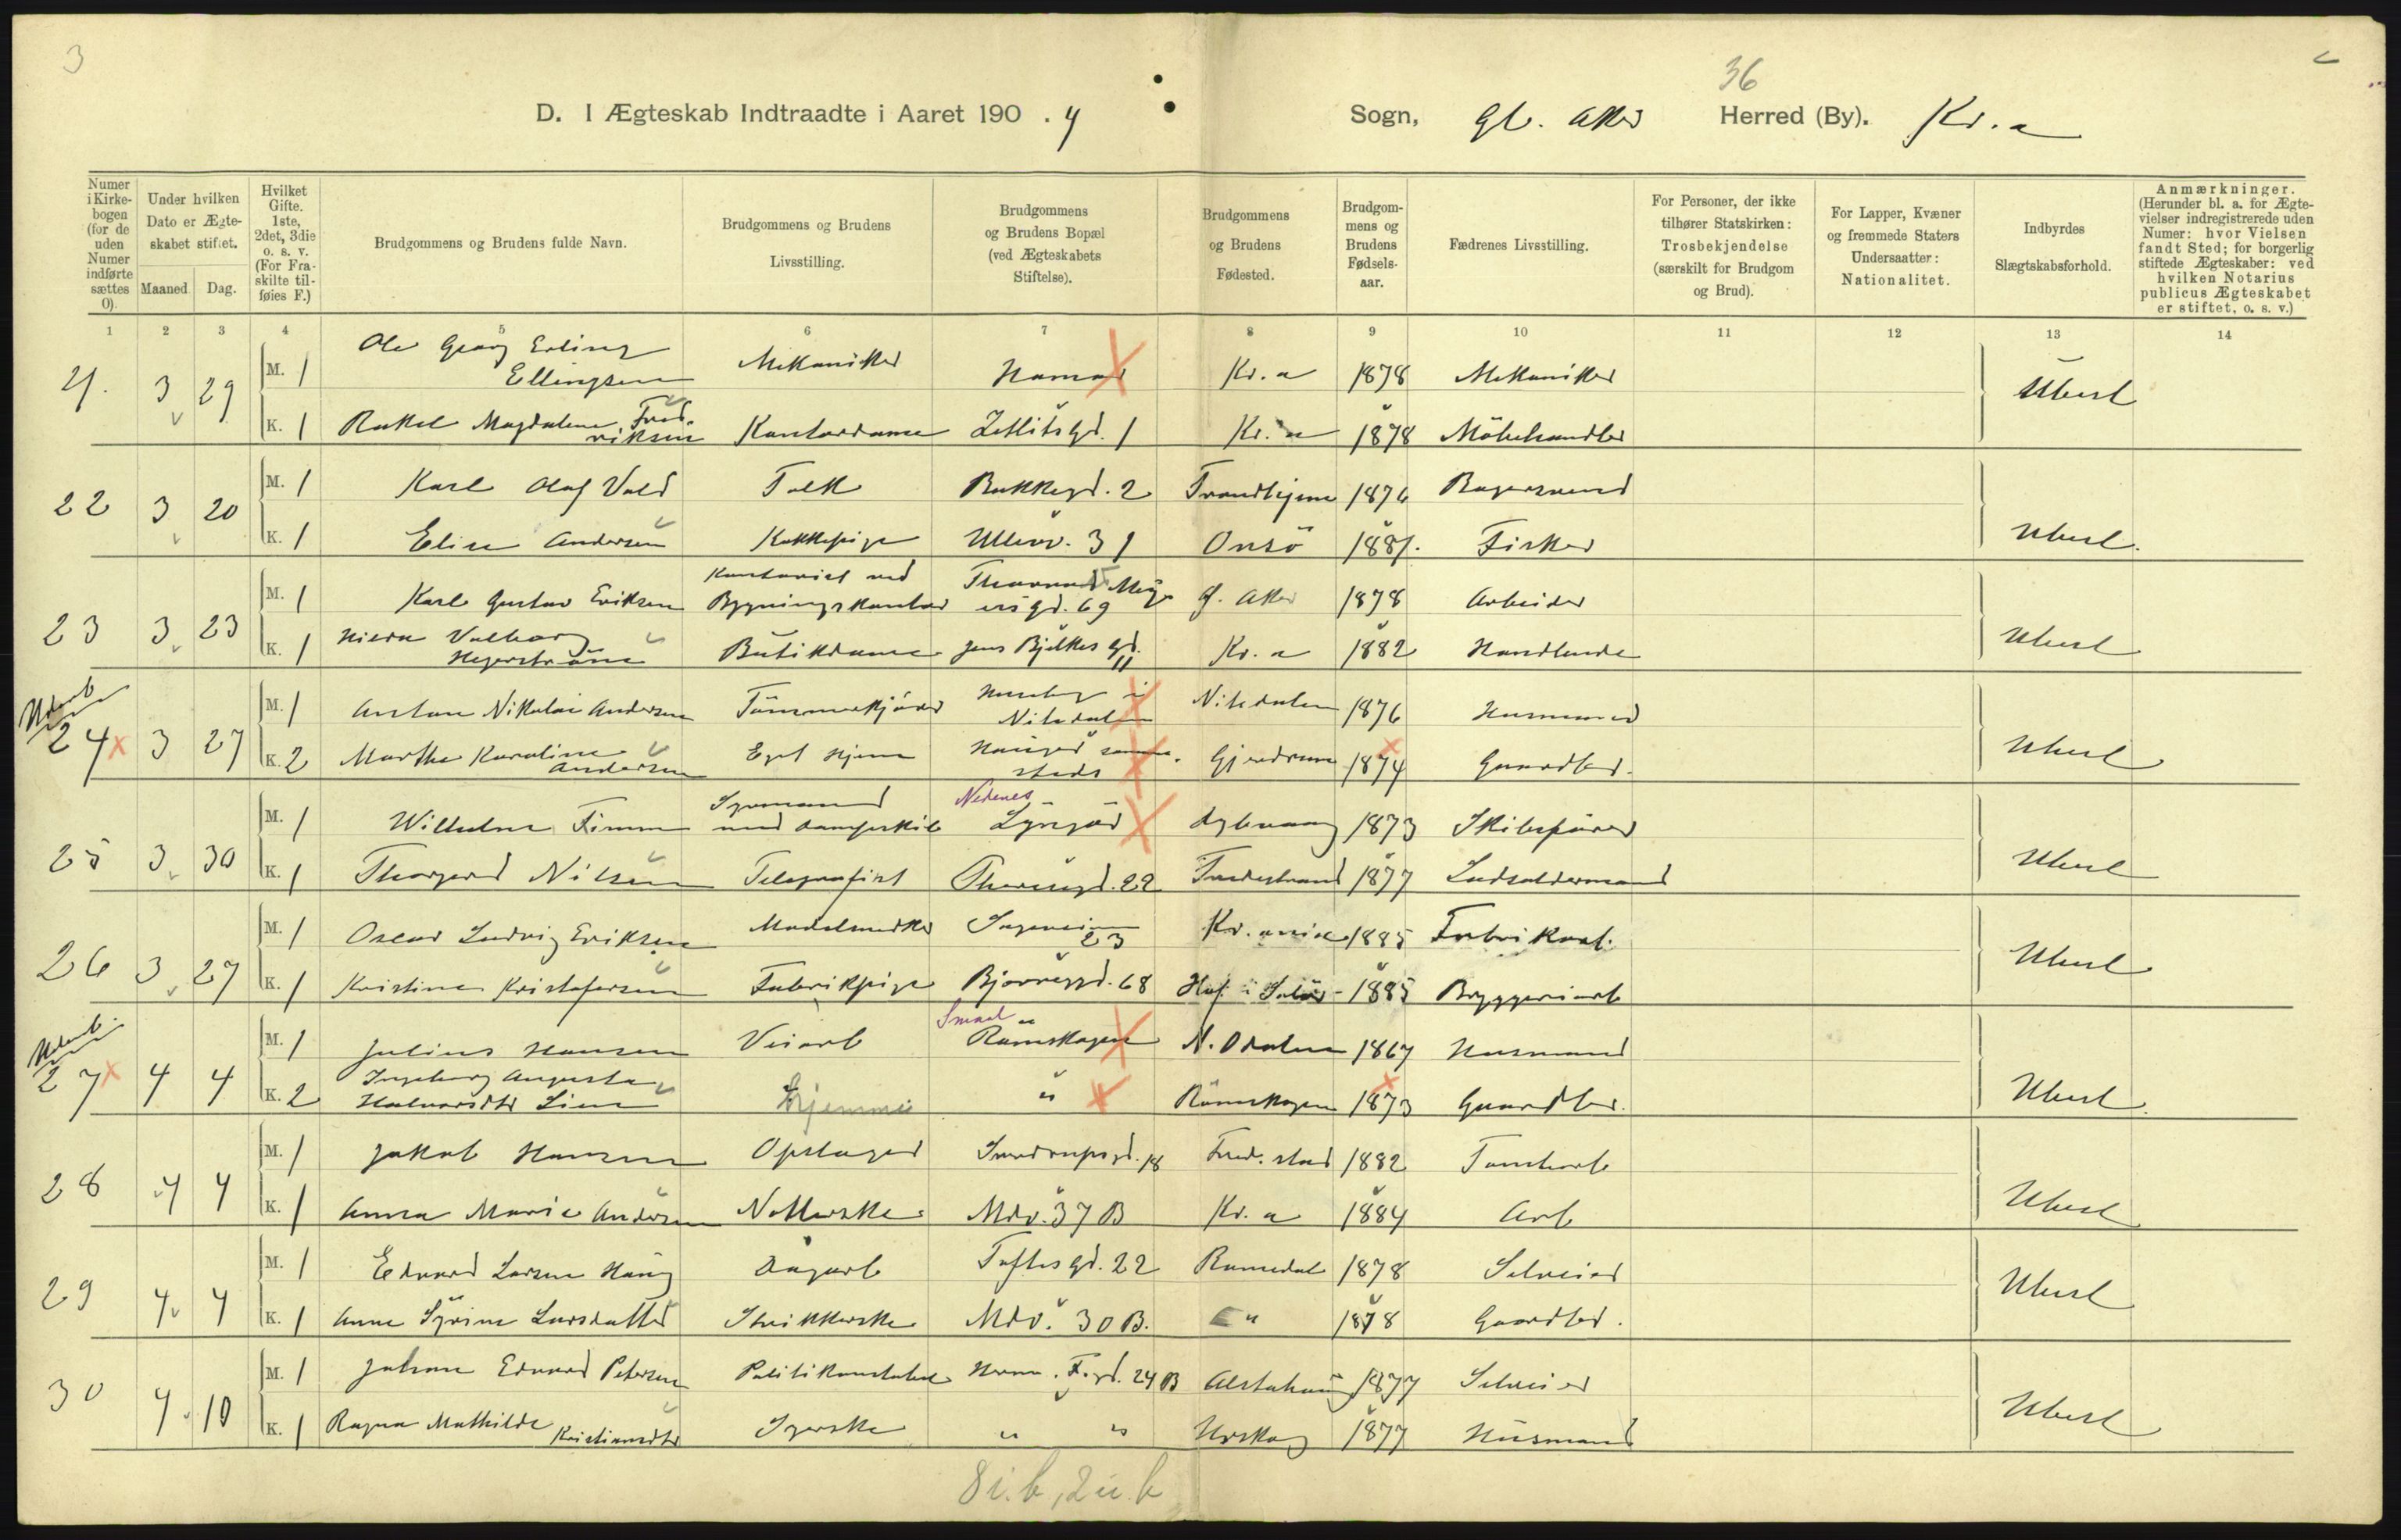 3
36
D. I Ægteskab Indtraadte i Aaret 190 . 4
Sogn, Gl. Aker Herred (By). Kr.a
Numer i Kirkebogen (for de uden Numer indførte sættes 0).
Under hvilken Dato er Ægteskabet stiftet.
Maaned. Dag.
Hvilket Gifte. 1ste, 2det, 3die o. s. v. (For Fraskilte tilføies F.)
Brudgommens og Brudens fulde Navn.
Brudgommens og Brudens Livsstilling.
Brudgommens og Brudens Bopæl (ved Ægteskabets Stiftelse).
Brudgommens og Brudens Fødested.
Brudgommens og Brudens Fødselsaar.
Fædrenes Livsstilling.
For Personer, der ikke tilhører Statskirken: Trosbekjendelse (særskilt for Brudgom og Brud).
For Lapper, Kvæner og fremmede Staters Undersaatter: Nationalitet.
Indbyrdes Slægtskabsforhold.
Anmærkninger. (Herunder bl. a. for Ægtevielser indregistrerede uden Numer: hvor Vielsen fandt Sted; for borgerlig stiftede Ægteskaber: ved hvilken Notarius publicus Ægteskabet er stiftet, o. s. v.)
1 2 3 4 5 6 7 8 9 10 11 12 13 14
21. 3 29 M. 1 Ole Georg Erling Ellingsen Mekaniker Hamar Kr.a 1878 Mekaniker Ubesl
K. 1 Rakel Magdalene Fredriksen Kontordame Zetlitsgd. 1 Kr.a 1878 Möbelhandler
22 3 20 M. 1 Karl Olaf Vold Tolk Bakkegd. 2 Trondhjem 1876 Bagersvend
K. 1 Elise Andersen Kokkepige Ullevv. 31 Onsö 1881. Fisker Ubesl.
23 3 23 M. 1 Karl Gustav Eriksen Kontorist ved Bygningskontor Thorvald Meyersgd. 69 G. Aker 1878 Arbeider
K. 1 Valborg Butikdame Jens Bjelkes Gd. 11 Kr.a 1882 Handlende Ubesl
24 3 27 M. 1 Anton Nikolai Andersen Tömmerkjörer i Nitedalen Nitedalen 1876 Husmand
K. 2 Marthe Karoline Andersen Eget Hjem Hauger sammesteds Gjerdrum 1874 Gaardbr. Ubesl
25 3 30 M. 1 Wilhelm Timm Styrmand med dampskib Nedenes Lyngör Dybvaag 1873 Skibsförer
K. 1 Thorgerd Nilsen Telegrafist Theresegd. 22 Fredrikstad 1877 Lodsoldermand Ubesl
26 3 27 M. 1 Oscar Ludvig Eriksen Modelsnedker Sagveien 23 Kr.ania 1885 Fabrikarb.
K. 1 Kristine Kristofersen Fabrikpige Bjerregd. 68 Hof i Solör 1885 Bryggeriarb Ubesl
27 4 4 M. 1 Julius Hansen Veiarb Smaal Römskogen N. Odalen 1867 Husmand
K. 2 Ingeborg Augusta Halvorsdtr Lien Hjemme " Römskogen 1873 Gaardbr. Ubesl.
28 4 4 M. 1 Jakob Hansen Opslager Sverdrupsgd. 18 Fred.stad 1882 Tomtearb
K. 1 Anna Marie Andersen Nopperske Mdv. 37 B Kr.a 1884 Arb Ubesl
29 4 4 M. 1 Edvard Larsen Haug Dagarb Toftes Gd. 22 Romsdal 1878 Selveier Ubesl
K. 1 Anne Syrine Larsdatter Strikkerske Mdv. 30 B. " 1878 Gaardbr.
30 4 10 M. 1 Johan Edvard Petersen Politikonstabel Herm. F.gd. 24 B Alstahaug 1877 Selveier
K. 1 Ragna Mathilde Kristiansdtr Syerske " " Urskog 1877 Husmand Ubesl
8 i.b, 2 u.b